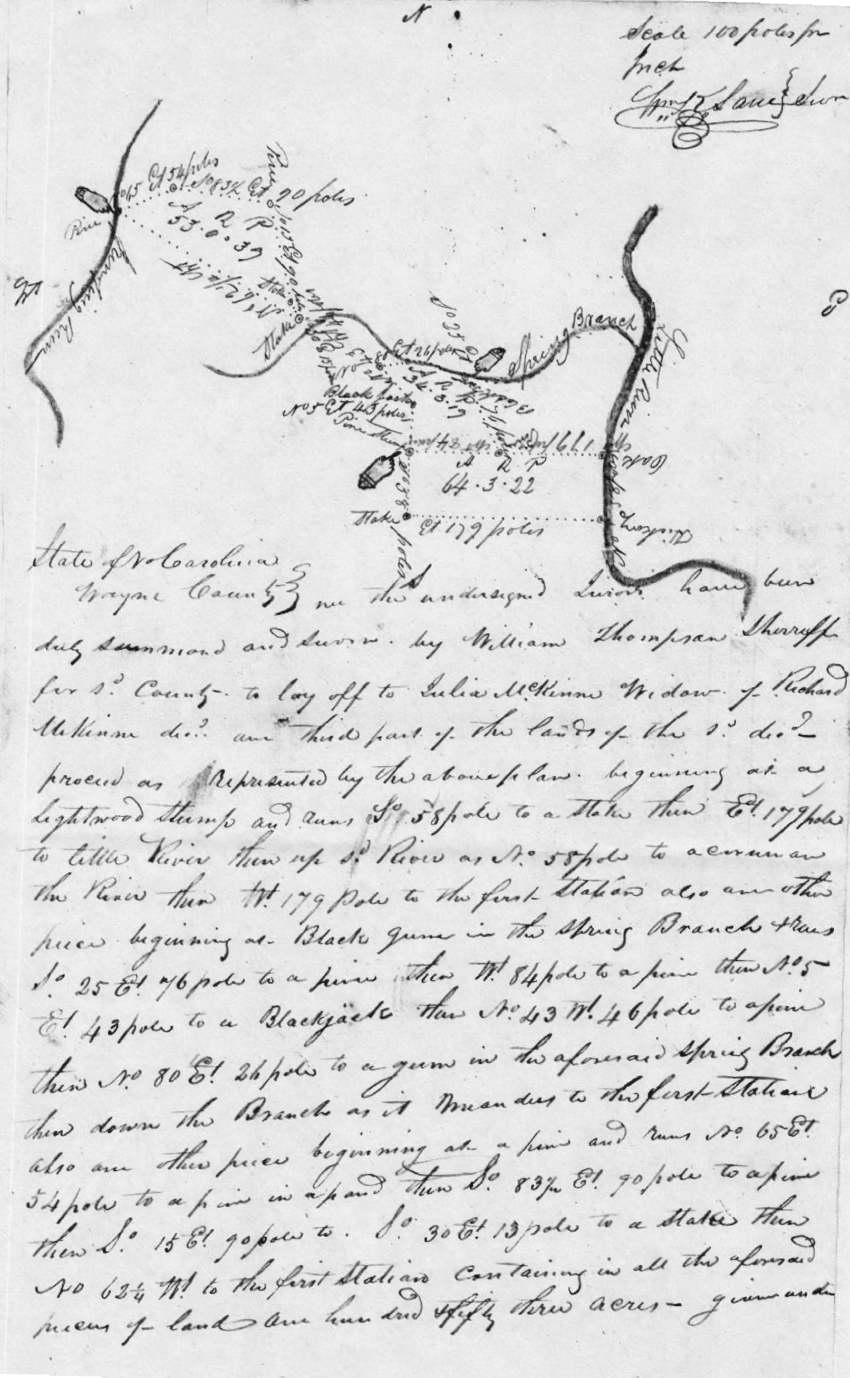 N
Scale 100 poles pr
Inch
No 65 Et 54 poles
So 83½ Et 90 poles
Pine
A R P
53.0.39
Pine
So 15 Et 90
Stake
Stake
W
E
So 25 E
Spring Branch
Little River
Et 26 poles
A R P
34.3.19
Black Jack
No 5 Et 43 poles
Pine Stump
Wt 84
179
Oak
A R P
64.3.22
So 58 poles
Stake
Et 179 poles
Hickory
S
State of No Carolina
Wayne County } we the undersigned Jurors have been
duly summond and sworn by William Thompson Sherruff
for sd County to lay off to Julia McKinne Widow of Richard
McKinne decd one third part of the lands of the sd decd
proceed as represented by the above plan beginning at a
Lightwood Stump and runs So 58 pole to a stake then Et 179 pole
to little River then up sd River as No 58 pole to a corner on
the River then Wt 179 pole to the first Station also an other
piece beginning at Black gum in the Spring Branch & runs
So 25 Et 76 pole to a pine then Wt 84 pole to a pine then No 5
Et 43 pole to a Blackjack then No 43 Wt 46 pole to a pine
then No 80 Et 26 pole to a gum in the aforesaid Spring Branch
then down the Branch as it meanders to the first Station
also an other piece beginning at a pine and runs No 65 Et
54 pole to a pine in a pond then So 83½ Et 90 pole to a pine
then So 15 Et 90 pole to So 30 Et 13 pole to a Stake then
No 62¼ Wt to the first Station containing in all the aforesaid
pieces of land one hundred & fifty three acres - given under